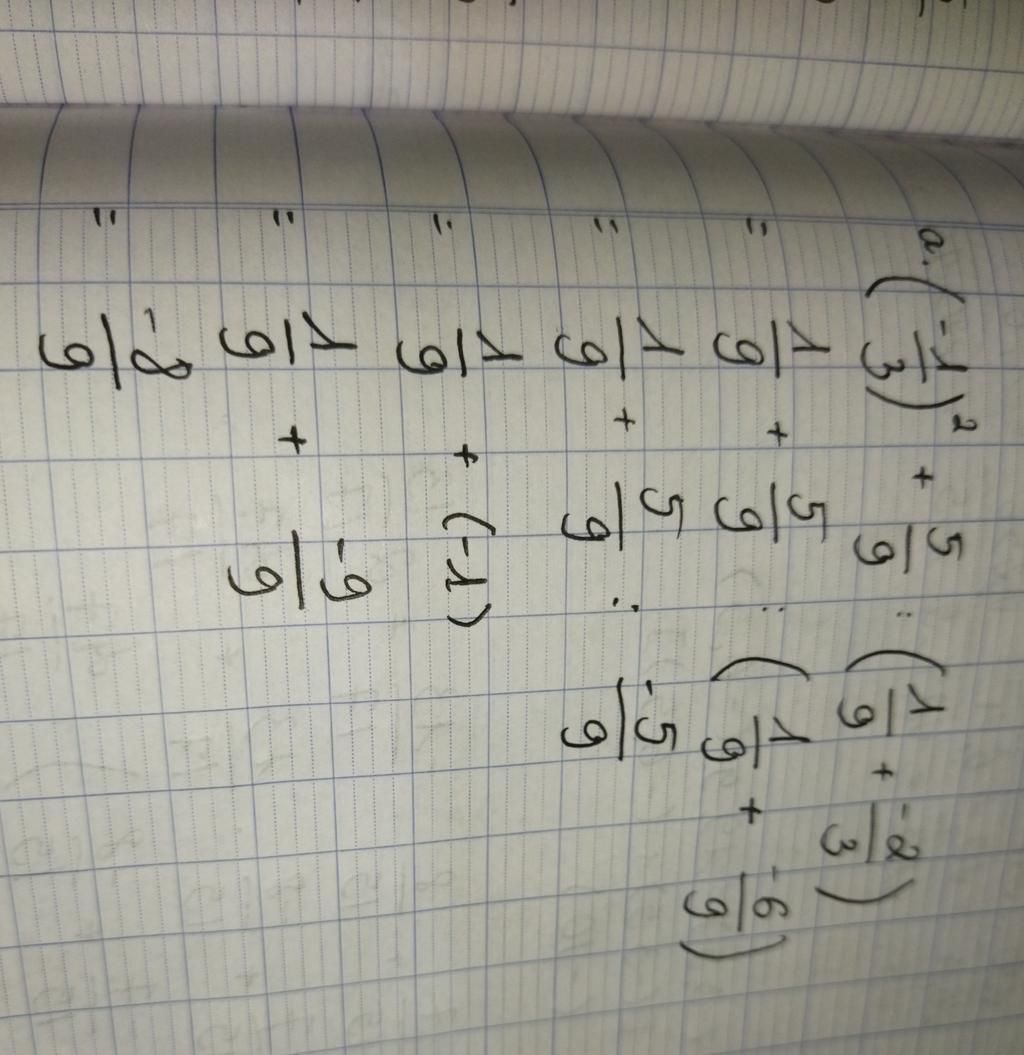 a. (-1/3)² + 5/9 : (1/9 + -2/3)
= 1/9 + 5/9 : (1/9 + -6/9)
= 1/9 + 5/9 : -5/9
= 1/9 + (-1)
= 1/9 + -9/9
= -8/9